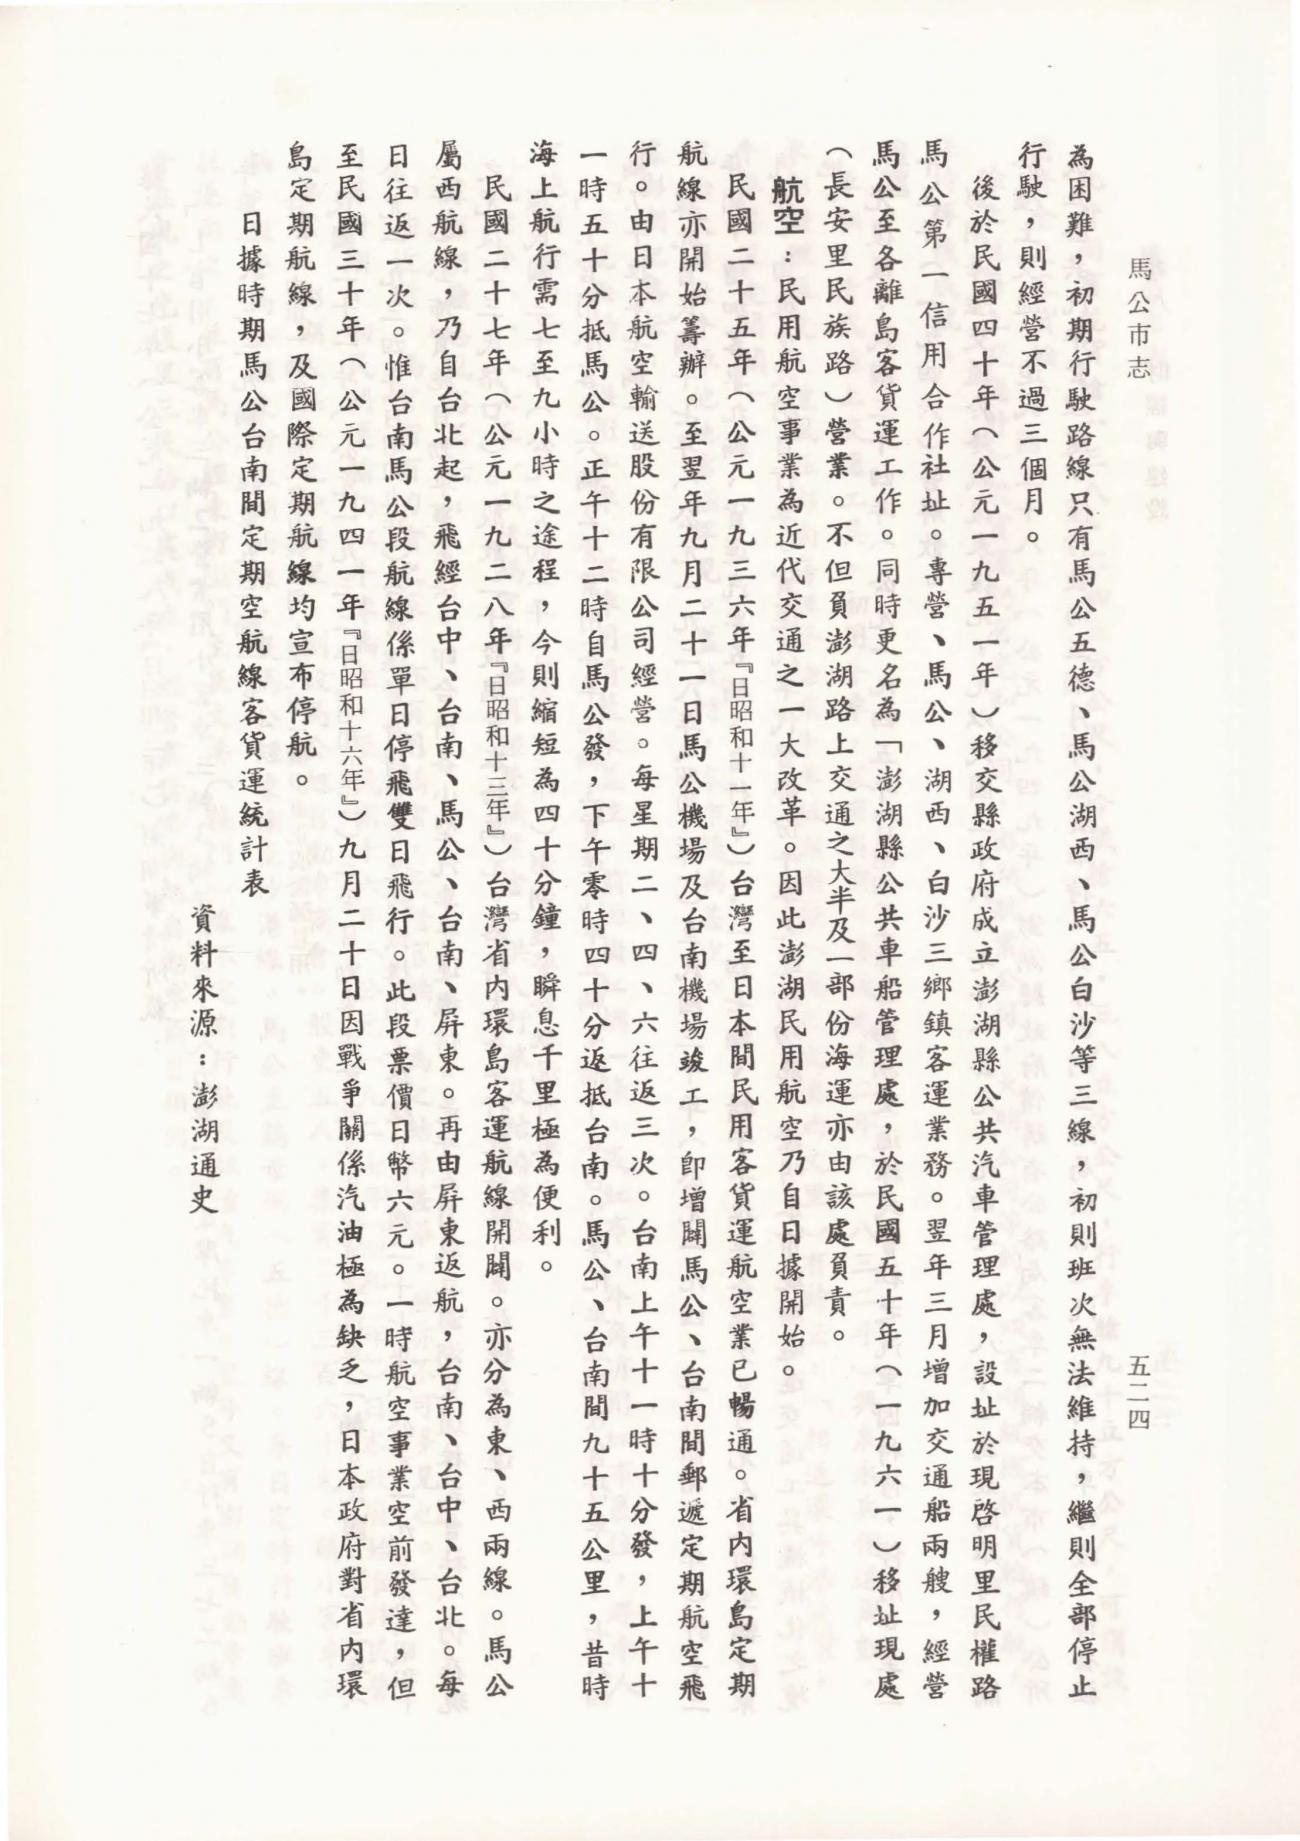 馬公市志
五二四
為困難，初期行駛路線只有馬公五德、馬公湖西、馬公白沙等三線，初則班次無法維持，繼則全部停止
行駛，則經營不過三個月。
後於民國四十年（公元一九五一年）移交縣政府成立澎湖縣公共汽車管理處，設址於現啓明里民權路
馬公第一信用合作社址。專營、馬公、湖西、白沙三鄉鎮客運業務。翌年三月增加交通船兩艘，經營
馬公至各離島客貨運工作。同時更名為「澎湖縣公共車船管理處，於民國五十年（一九六一）移址現處
（長安里民族路）營業。不但負澎湖路上交通之大半及一部份海運亦由該處負責。
航空：民用航空事業為近代交通之一大改革。因此澎湖民用航空乃自日據開始。
民國二十五年（公元一九三六年『日昭和十一年』）台灣至日本間民用客貨運航空業已暢通。省內環島定期
航線亦開始籌辦。至翌年九月二十一日馬公機場及台南機場竣工，卽增闢馬公、台南間郵遞定期航空飛
行。由日本航空輸送股份有限公司經營。每星期二、四、六往返三次。台南上午十一時十分發，上午十
一時五十分抵馬公。正午十二時自馬公發，下午零時四十分返抵台南。馬公、台南間九十五公里，昔時
海上航行需七至九小時之途程，今則縮短為四十分鐘，瞬息千里極為便利。
民國二十七年（公元一九二八年『日昭和十三年』）台灣省內環島客運航線開闢。亦分為東、西兩線。馬公
屬西航線，乃自台北起，飛經台中、台南、馬公、台南、屏東。再由屏東返航，台南、台中、台北。每
日往返一次。惟台南馬公段航線係單日停飛雙日飛行。此段票價日幣六元。一時航空事業空前發達，但
至民國三十年（公元一九四一年『日昭和十六年』）九月二十日因戰爭關係汽油極為缺乏，日本政府對省內環
島定期航線，及國際定期航線均宣布停航。
日據時期馬公台南間定期空航線客貨運統計表
資料來源：澎湖通史